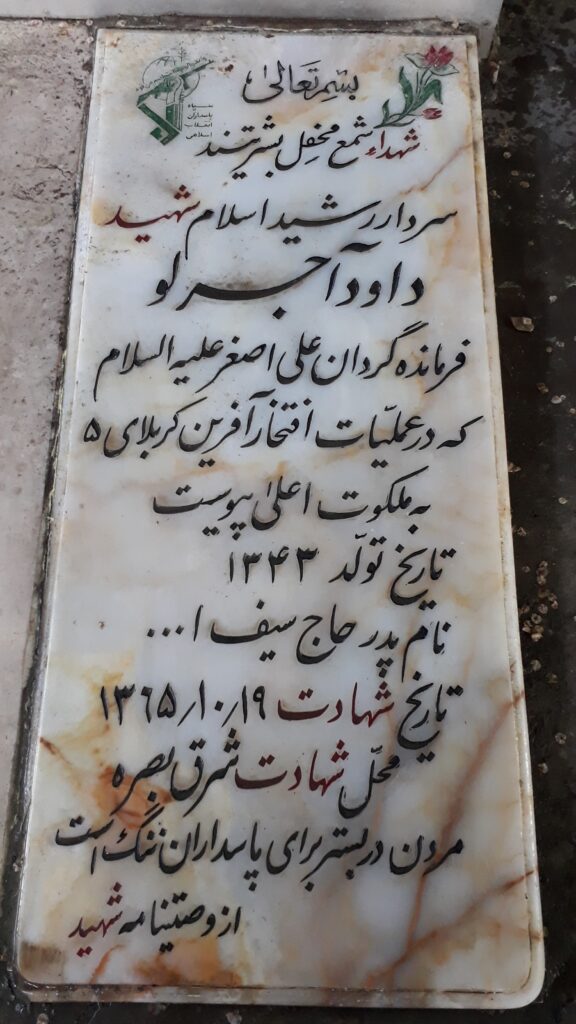 بسمِ تَعالیٰ
سپاه
پاسداران
انقلاب
اسلامی
شهداء شمع محفل بشریتند
سردار رشید اسلام شهید
داود آجرلو
فرمانده گردان علی اصغر علیه السلام
که در عملیّات افتخار آفرین کربلای ۵
به ملکوت اعلیٰ پیوست
تاریخ تولّد ۱۳۴۳
نام پدر حاج سیف ا...
تاریخ شهادت ۱۳۶۵/۱۰/۱۹
محلّ شهادت شرق بصره
مردن در بستر برای پاسداران ننگ است
از وصیتنامه شهید